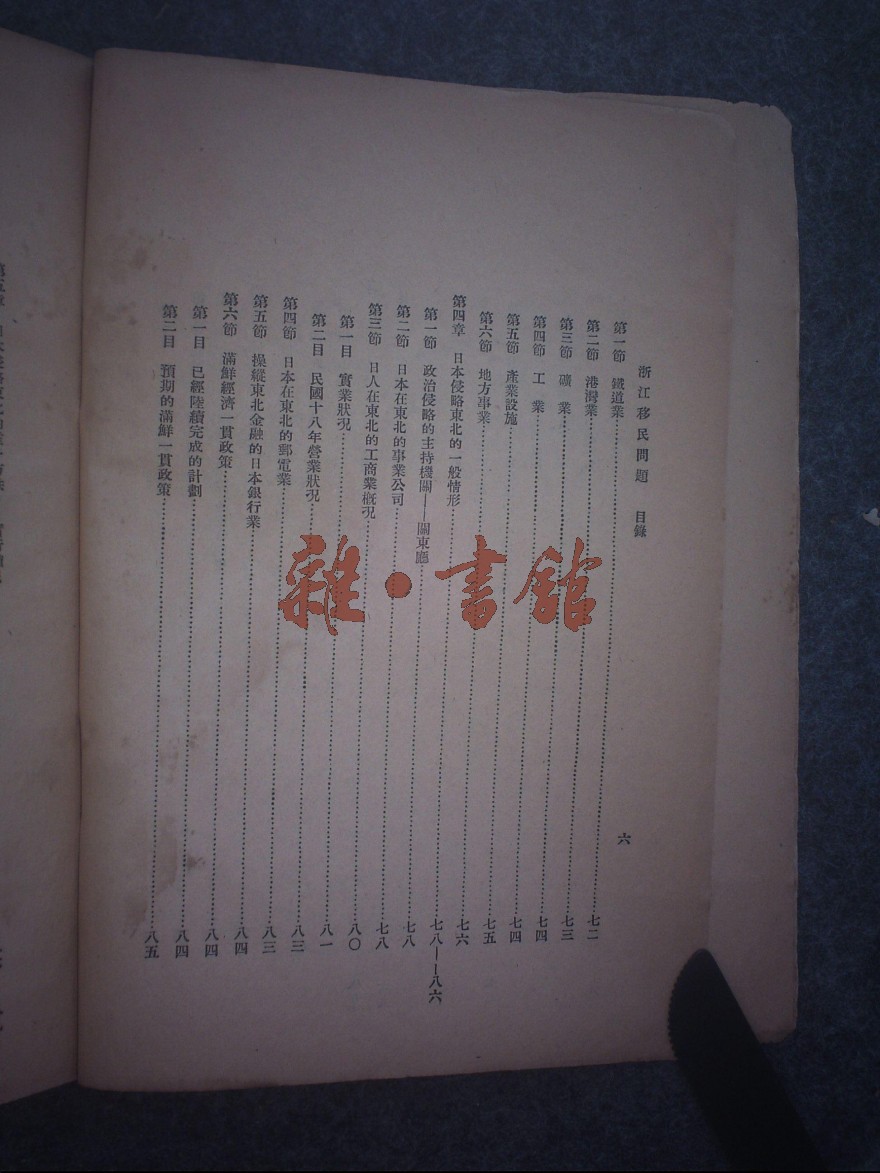 浙江移民問題 目錄
六
第一節 鐵道業……七二
第二節 港灣業……七三
第三節 礦業……七四
第四節 工業……七四
第五節 產業設施……七四
第六節 地方事業……七五
第四章 日本侵略東北的一般情形……七八——八六
第一節 政治侵略的主持機關——關東廳……七八
第二節 日本在東北的事業公司……七八
第三節 日人在東北的工商業概況……八〇
第一目 實業狀況……八〇
第二目 民國十八年營業狀況……八一
第四節 日本在東北的郵電業……八三
第五節 操縱東北金融的日本銀行業……八三
第六節 滿鮮經濟一貫政策……八四
第一目 已經陸續完成的計劃……八四
第二目 預期的滿鮮一貫政策……八五
雜·書館